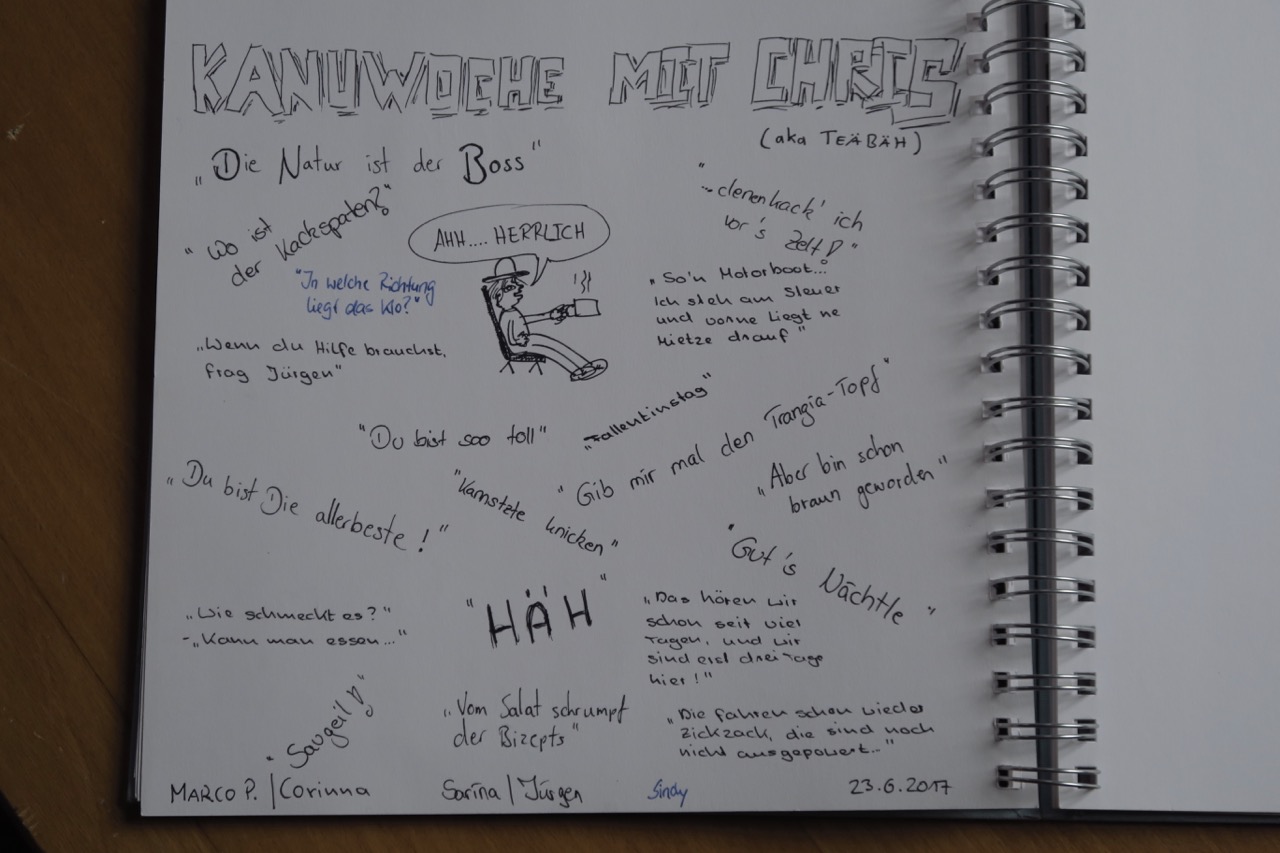 KANUWOCHE MIT CHRIS
(aka TEÄBÄH)
„Die Natur ist der Boss"
"...denen kack' ich
vor's Zelt!"
"Wo ist
der Kackspaten?"
AHH.... HERRLICH
"In welche Richtung
liegt das Klo?"
„So'n Motorboot...
Ich steh am Steuer
und vorne liegt ne
Mietze drauf"
„Wenn du Hilfe brauchst,
frag Jürgen"
"Du bist soo toll"
"Fallentinstag"
"Gib mir mal den Trangia-Topf"
„Aber bin schon
braun geworden"
„Du bist Die allerbeste!"
knicken"
"Gut's Nächtle"
„Wie schmeckt es?"
-„Kann man essen..."
"HÄH"
„Das hören wir
schon seit vier
Tagen, und wir
sind erst drei Tage
hier!"
"Saugeil!"
„Vom Salat schrumpf
der Bizepts"
„Die fahren schon wieder
zickzack, die sind noch
nicht ausgepowert..."
MARCO P. | Corinna
Sarina | Jürgen
Sindy
23.6.2017